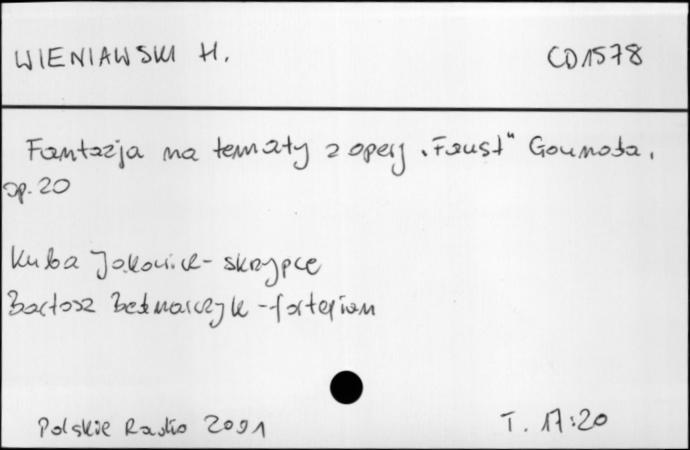 WIENIAWSKI H. CD1578
Fantazja na tematy z opery "Faust" Gounoda,
op. 20
Kuba Jakowicz - skrzypce
Bartosz Bednarczyk - fortepian
Polskie Radio 2001 T. 17:20